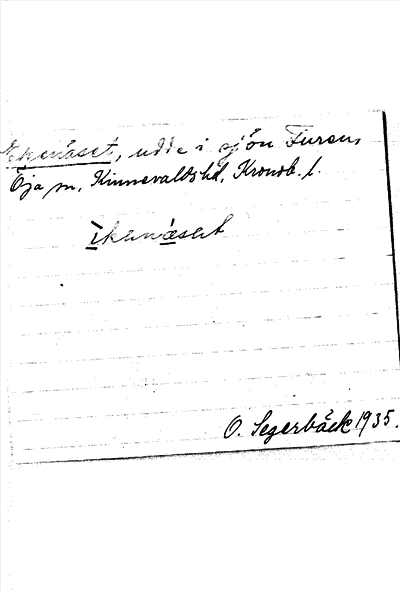 Ekenäset, udde i sjön Furen,
Öja sn, Kinnevalds hd, Kronob. l.
ìkenä̀set
O. Segerbäck 1935.